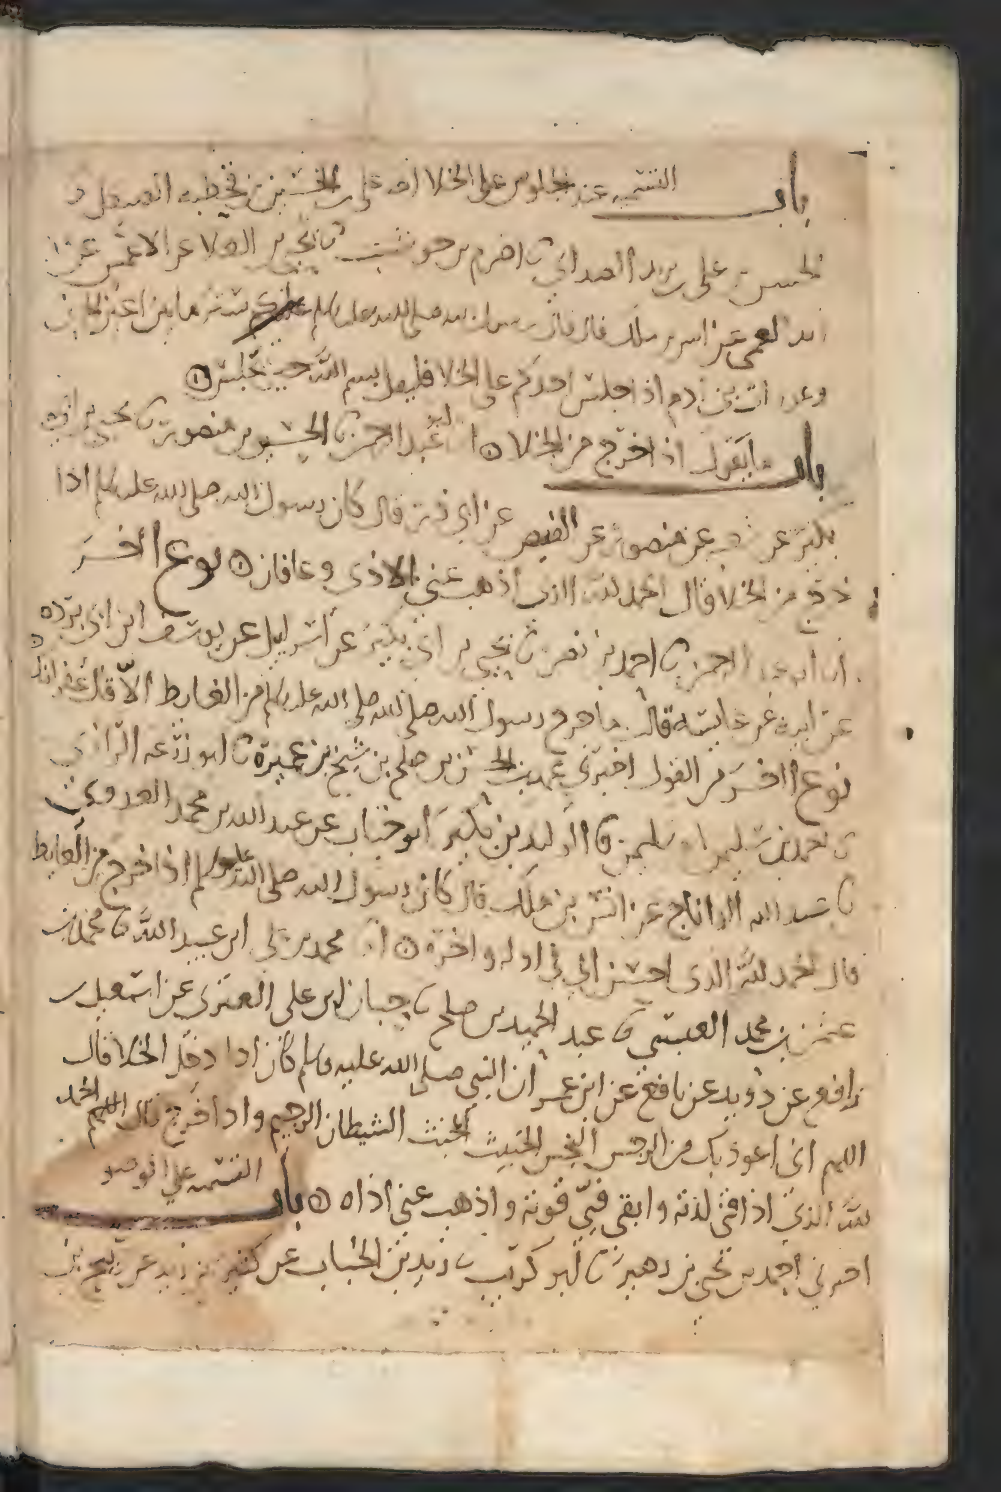 باب التسميه عند الجلوس على الخلا اخبرنا على بن الحسن بن قحطبه الصيقل
الحسين بن على بن يزيد الصدائي ثنا اصرم بن حوشب ثنا يحيى بن العلا عن الاعمش عن
زيد العمى عن انس بن ملك قال قال رسول الله صلى الله عليه وسلم ستر ما بين اعين الجن
وعورات بنى ادم اذا جلس احدكم على الخلا فليقل بسم الله حين يجلس
باب ما يقول اذا خرج من الخلا انا ابو عبد الرحمن ثنا الحسين بن منصور ثنا يحيى بن ابي
بكير عن شعبه عن منصور عن الفيض عن ابي ذر قال كان رسول الله صلى الله عليه وسلم اذا
خرج من الخلا قال الحمد لله الذى اذهب عنى الاذى وعافانى نوع اخر
انا ابو عبد الرحمن ثنا احمد بن نصر ثنا يحيى بن ابى بكير عن اسرايل عن يوسف ابن ابى برده
عن ابيه عن عايشه قالت ما خرج رسول الله صلى الله صلى الله عليه وسلم من الغايط الا قال غفرانك
نوع اخر من القول اخبرنى محمد بن الحسن بن صلح بن شيخ بن عميرة ثنا ابو زرعه الرازى
ثنا احمد بن سليمن ابو سليمن ثنا الوليد بن بكير ابو خباب عن عبد الله بن محمد العدوى
ثنا عبد الله الداناج عن انس بن ملك قال كان رسول الله صلى الله عليه وسلم اذا خرج من الغايط
قال الحمد لله الذى احسن الى فى اوله واخره انا محمد بن على ابن عبيد الله ثنا محمد بن
عثمن بن محمد العبسى ثنا عبد الحميد بن صلح ثنا حبان بن على العنزى عن اسمعيل بن
رافع عن دويد عن نافع عن ابن عمر ان النبي صلى الله عليه وسلم كان اذا دخل الخلا قال
اللهم انى اعوذ بك من الرجس النجس الخبيث المخبث الشيطان الرجيم واذا خرج قال الحمد
لله الذى اذاقنى لذته وابقى فىّ قوته واذهب عنى اذاه باب التسميه على الوضو
اخبرنى احمد بن يحيى بن زهير ثنا ابو كريب ثنا زيد بن الحباب عن كثير بن زيد عن ربيح بن